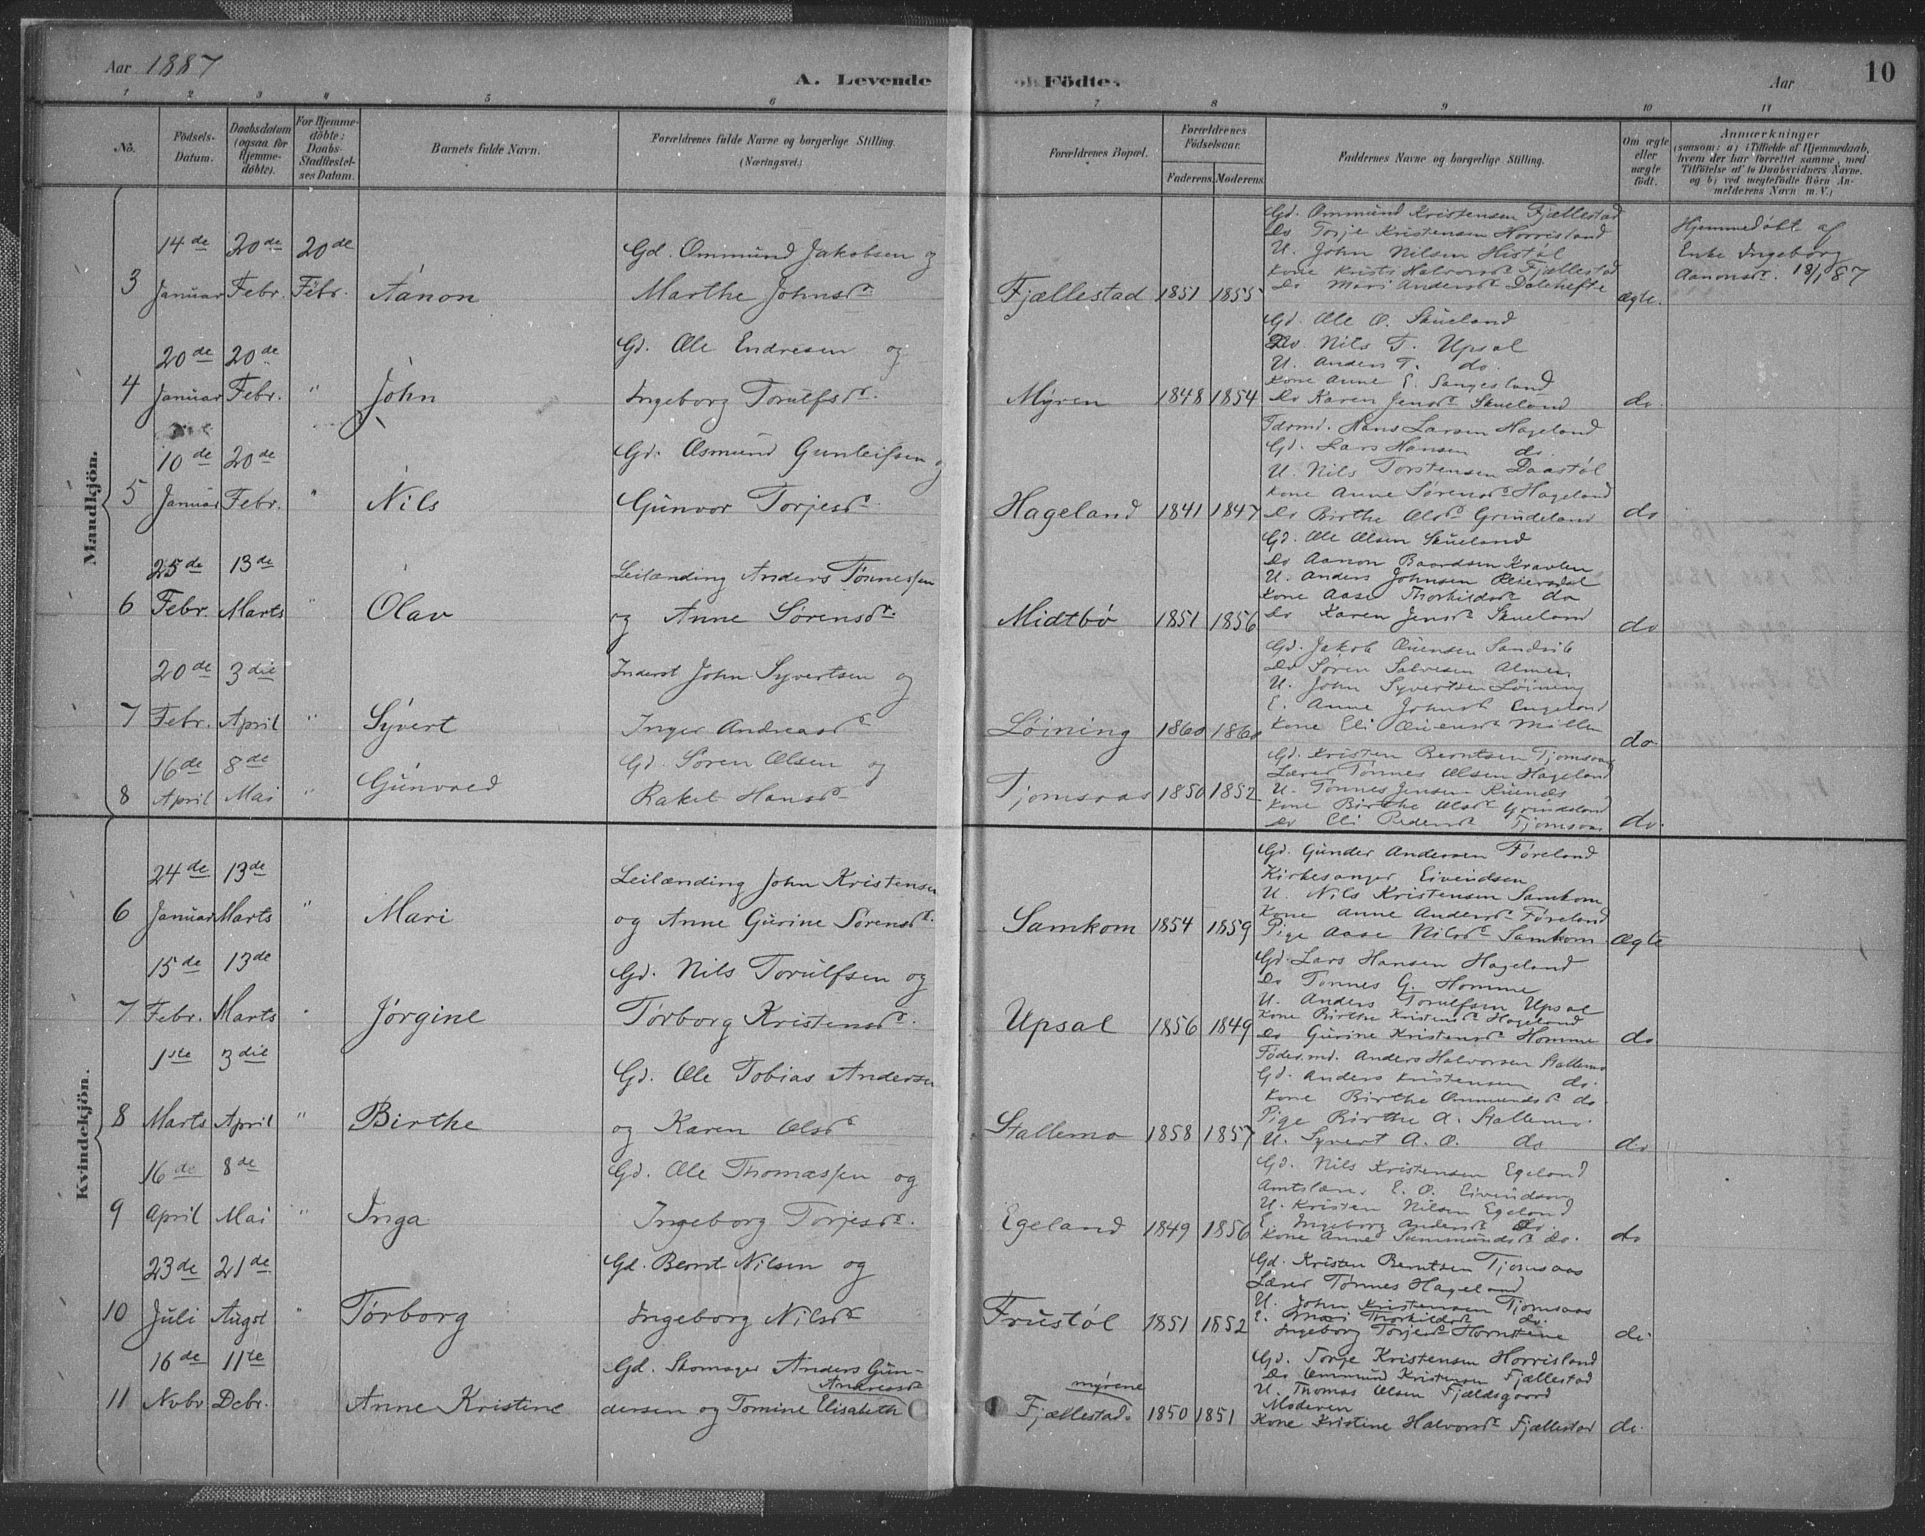 Aar 1887
A. Levende
Födte.
Aar
10
1 2 3 4 5 6 7 8 9 10 11
No.
Födsels-
Datum.
Daabsdatum
(ogsaa for
Hjemme-
döbte).
For Hjemme-
döbte:
Daabs-
Stadfæstel-
ses Datum.
Barnets fulde Navn.
Forældrenes fulde Navne og borgerlige Stilling.
(Næringsvei.)
Forældrenes Bopæl.
Forældrenes
Födselsaar.
Faderens. Moderens.
Faddernes Navne og borgerlige Stilling.
Om ægte
eller
uægte
født.
Anmærkninger
(saasom: a) i Tilfælde af Hjemmedaab,
hvem der har forrettet samme, med
Tilföielse af to Daabsvidners Navne,
og b) ved uægtefödte Börn An-
melderens Navn m. V.)
Mandkjön.
3
14de Januar
20de Febr.
20de Febr.
Aanon
Gd. Ommund Jakobsen og
Marthe Johnsd.
Fjællestad 1851 1855
Gd. Ommund Kristensen Fjællestad
Do Torje Kristensen Horrisland
U. John Nilsen Histöl
Kone Kristi Halvorsd. Fjællestad
Do Mari Andersd. Dalehefte
ægte.
Hjemmedöbt af
Enke Ingeborg
Aanonsd. 18/1 87
4
20de Januar
20de Febr.
"
John
Gd. Ole Endresen og
Ingeborg Torulfsd.
Myren 1848 1854
Gd. Ole O. Skueland
Do. Nils T. Upsal
U. Anders T. do.
Kone Anne E. Sangesland
Do Karen Jensd. Skueland
do.
5
10de Januar
20de Febr.
"
Nils
Gd. Osmund Gunleifsen og
Gunvor Torjesd.
Hageland 1841 1847
Hans Larsen Hageland
Gd. Lars Hansen do.
U. Nils Torstensen Daastöl
Kone Anne Sørensd. Hageland
Do Birthe Olsd. Grindeland
do
6
25de Febr.
13de Marts
"
Olav
Leilænding Anders Tønnessen
og Anne Sørensd.
Midtbö 1851 1856
Gd. Ole Olsen Skueland
Do Aanon Baardsen Kravlen
U. Anders Johnsen Reiersdal
Kone Aase Thorkildsd. do
Do Karen Jensd. Skueland
do
7
20de Febr.
3die April
"
Syvert
Inderst John Syvertsen og
Inger Andreasd.
Löining 1860 1860
Gd. Jakob Sandvik
Do Sören Salvesen
U. John Syvertsen Löining
E. Anne Johnsd. Engeland
Kone Eli
do.
8
16de April
8de Mai
"
Gunvald
Gd. Sören Olsen og
Rakel Hansd.
Tjomsaas 1850 1852
Gd. Kristen Berntsen Tjomsaas
Lærer Tönnes Olsen Hageland
U. Tönnes Jensen
Kone Birthe Olsd. Grindeland
Do Eli Pedersd. Tjomsaas
do.
Kvindekjön.
6
24de Januar
13de Marts
"
Mari
Leilænding John Kristensen
og Anne Gurine Sörensd.
Samkom 1854 1859
Gd. Gunder Andersen Föreland
Kirkesanger Eivindsen
U. Nils Kristensen Samkom
Kone Anne Andersd. Föreland
Pige Aase Nilsd. Samkom
ægte
7
15de Febr.
13de Marts
"
Jørgine
Gd. Nils Torulfsen og
Tørborg Kristensd.
Upsal 1856 1849
Gd. Lars Hansen Hageland
Do Tönnes G. Homme
U. Anders Torulfsen Upsal
Kone Birthe Kristensd. Hageland
Do Gurine Kristensd. Homme
do
8
1ste Marts
3die April
"
Birthe
Gd. Ole Tobias Andersen
og Karen Olsd.
Stallemo 1858 1857
Föder.md. Anders Halvorsen Stallemo
Gd. Anders Kristensen do.
Kone Birthe Ommundsd. do.
Pige Birthe A. Stallemo.
U. Syvert A. O. do
do
9
16de April
8de Mai
"
Inga
Gd. Ole Thomassen og
Ingeborg Torjesd.
Egeland 1849 1856
Gd. Nils Kristensen Egeland
E. O. Eivindsen
U. Kristen Nilsen Egeland
E. Ingeborg Andersd. do.
Kone Anne do.
do
10
23de Juli
21de Augst
"
Tørborg
Gd. Bernt Nilsen og
Ingeborg Nilsd.
Frustöl 1851 1852
Gd. Kristen Berntsen Tjomsaas
Lærer Tønnes Hageland
U. John Kristensen Tjomsaas
E. Mari Thorkildsd. do.
Ingeborg Torjesd.
do
11
16de Novbr
11te Dcbr.
Anne Kristine
Gd. Skomager Anders Gun-
Andreasd.
dersen og Tomine Elisabeth
myrene
Fjællestad. 1850 1851
Gd. Torje Kristensen Horrisland
Do Ommund Kristensen Fjællestad
U. Thomas Olsen Fjældsgaard
Moderen
Kone Kristine Halvorsd. Fjællestad
do.